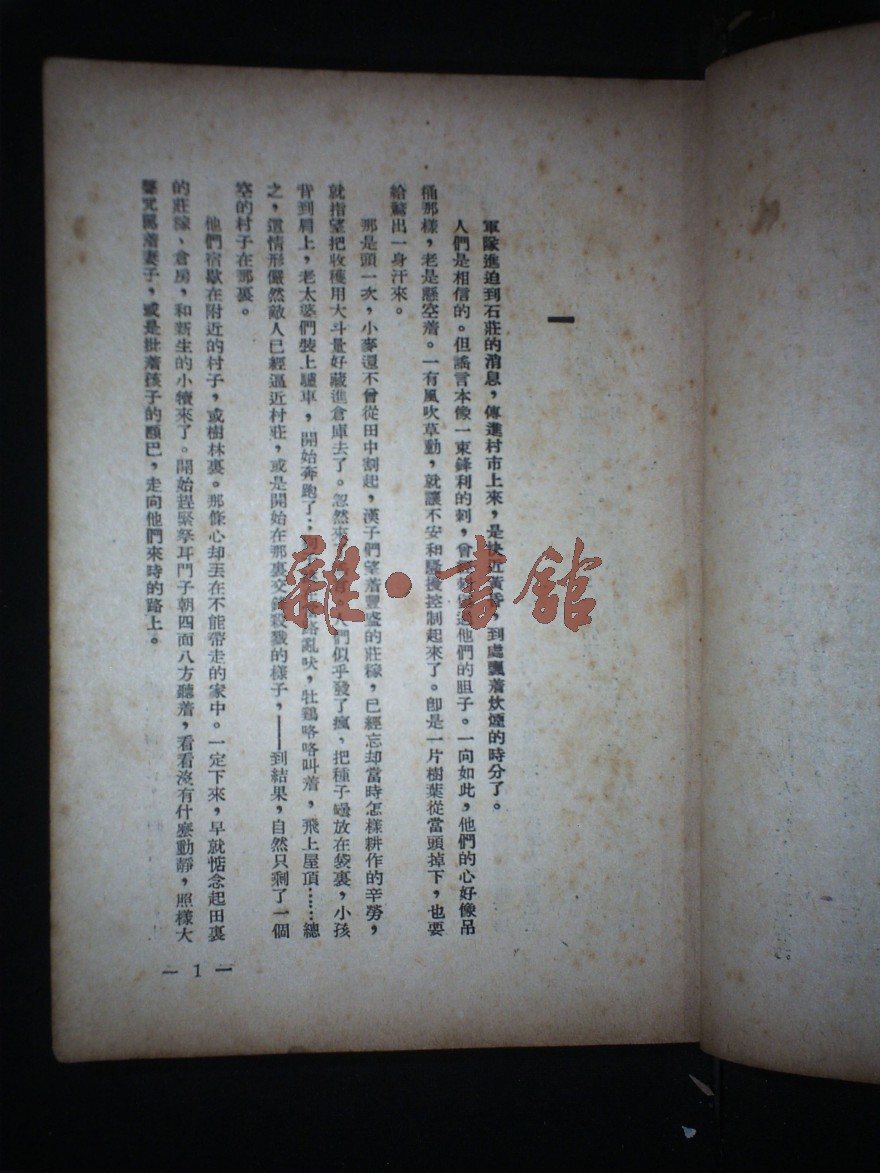 一
軍隊進迫到石莊的消息，傳進村市上來，是快近黃昏，到處飄着炊煙的時分了。
人們是相信的。但謠言本像一束鋒利的刺，曾經過他們的胆子。一向如此，他們的心好像吊
桶那樣，老是懸空着。一有風吹草動，就讓不安和騷擾控制起來了。卽是一片樹葉從當頭掉下，也要
給驚出一身汗來。
那是頭一次，小麥還不曾從田中割起，漢子們望着豐盛的莊稼，已經忘却當時怎樣耕作的辛勞，
就指望把收穫用大斗量好藏進倉庫去了。忽然來人們似乎發了瘋，把種子放在袋裏，小孩
背到肩上，老太婆們裝上驢車，開始奔跑了；路亂吠，牡鷄咯咯叫着，飛上屋頂……總
之，這情形儼然敵人已經逼近村莊，或是開始在那裏交鋒殺戮的樣子，——到結果，自然只剩了一個
空的村子在那裏。
他們宿歇在附近的村子，或樹林裏。那條心却丟在不能帶走的家中。一定下來，早就惦念起田裏
的莊稼、倉房，和新生的小犢來了。開始趕緊拏耳門子朝四面八方聽着，看看沒有什麼動靜，照樣大
聲咒罵着妻子，或是批着孩子的頤巴，走向他們來時的路上。
— 1 —
雜·書館